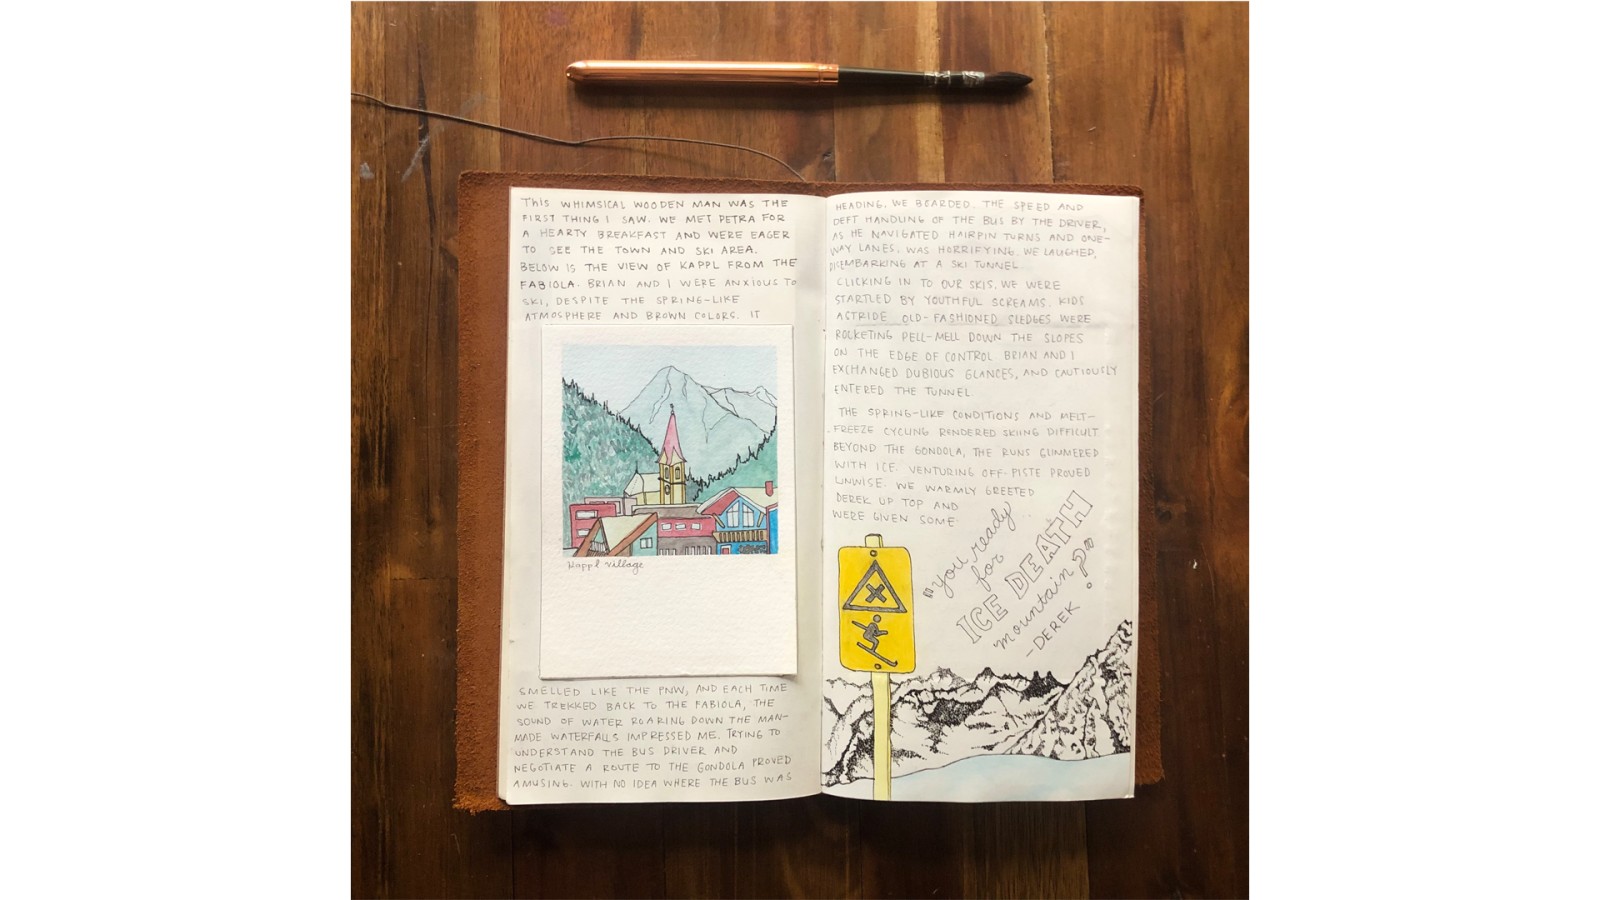 THIS WHIMSICAL WOODEN MAN WAS THE
FIRST THING I SAW. WE MET PETRA FOR
A HEARTY BREAKFAST AND WERE EAGER
TO SEE THE TOWN AND SKI AREA.
BELOW IS THE VIEW OF KAPPL FROM THE
FABIOLA. BRIAN AND I WERE ANXIOUS TO
SKI, DESPITE THE SPRING-LIKE
ATMOSPHERE AND BROWN COLORS. IT
Kappl village
SMELLED LIKE THE PNW, AND EACH TIME
WE TREKKED BACK TO THE FABIOLA, THE
SOUND OF WATER ROARING DOWN THE MAN-
MADE WATERFALLS IMPRESSED ME. TRYING TO
UNDERSTAND THE BUS DRIVER AND
NEGOTIATE A ROUTE TO THE GONDOLA PROVED
AMUSING. WITH NO IDEA WHERE THE BUS WAS
HEADING, WE BOARDED. THE SPEED AND
DEFT HANDLING OF THE BUS BY THE DRIVER,
AS HE NAVIGATED HAIRPIN TURNS AND ONE-
WAY LANES, WAS HORRIFYING. WE LAUGHED,
DISEMBARKING AT A SKI TUNNEL.
CLICKING IN TO OUR SKIS, WE WERE
STARTLED BY YOUTHFUL SCREAMS. KIDS
ASTRIDE OLD-FASHIONED SLEDGES WERE
ROCKETING PELL-MELL DOWN THE SLOPES
ON THE EDGE OF CONTROL. BRIAN AND I
EXCHANGED DUBIOUS GLANCES, AND CAUTIOUSLY
ENTERED THE TUNNEL.
THE SPRING-LIKE CONDITIONS AND MELT-
FREEZE CYCLING RENDERED SKIING DIFFICULT
BEYOND THE GONDOLA, THE RUNS GLIMMERED
WITH ICE. VENTURING OFF-PISTE PROVED
UNWISE. WE WARMLY GREETED
DEREK UP TOP AND
WERE GIVEN SOME...
"you ready
for
ICE DEATH
mountain?"
-DEREK